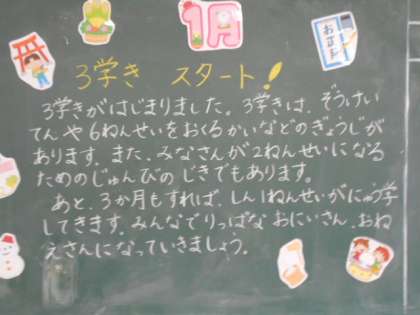 1月
3学き スタート!
3学きがはじまりました。3学きは、ぞうけい
てんや6ねんせいをおくるかいなどのぎょうじが
あります。また、みなさんが2ねんせいになる
ためのじゅんびのじきでもあります。
あと、3か月もすれば、しん1ねんせいがにゅう学
してきます。みんなでりっぱなおにいさん、おね
えさんになっていきましょう。